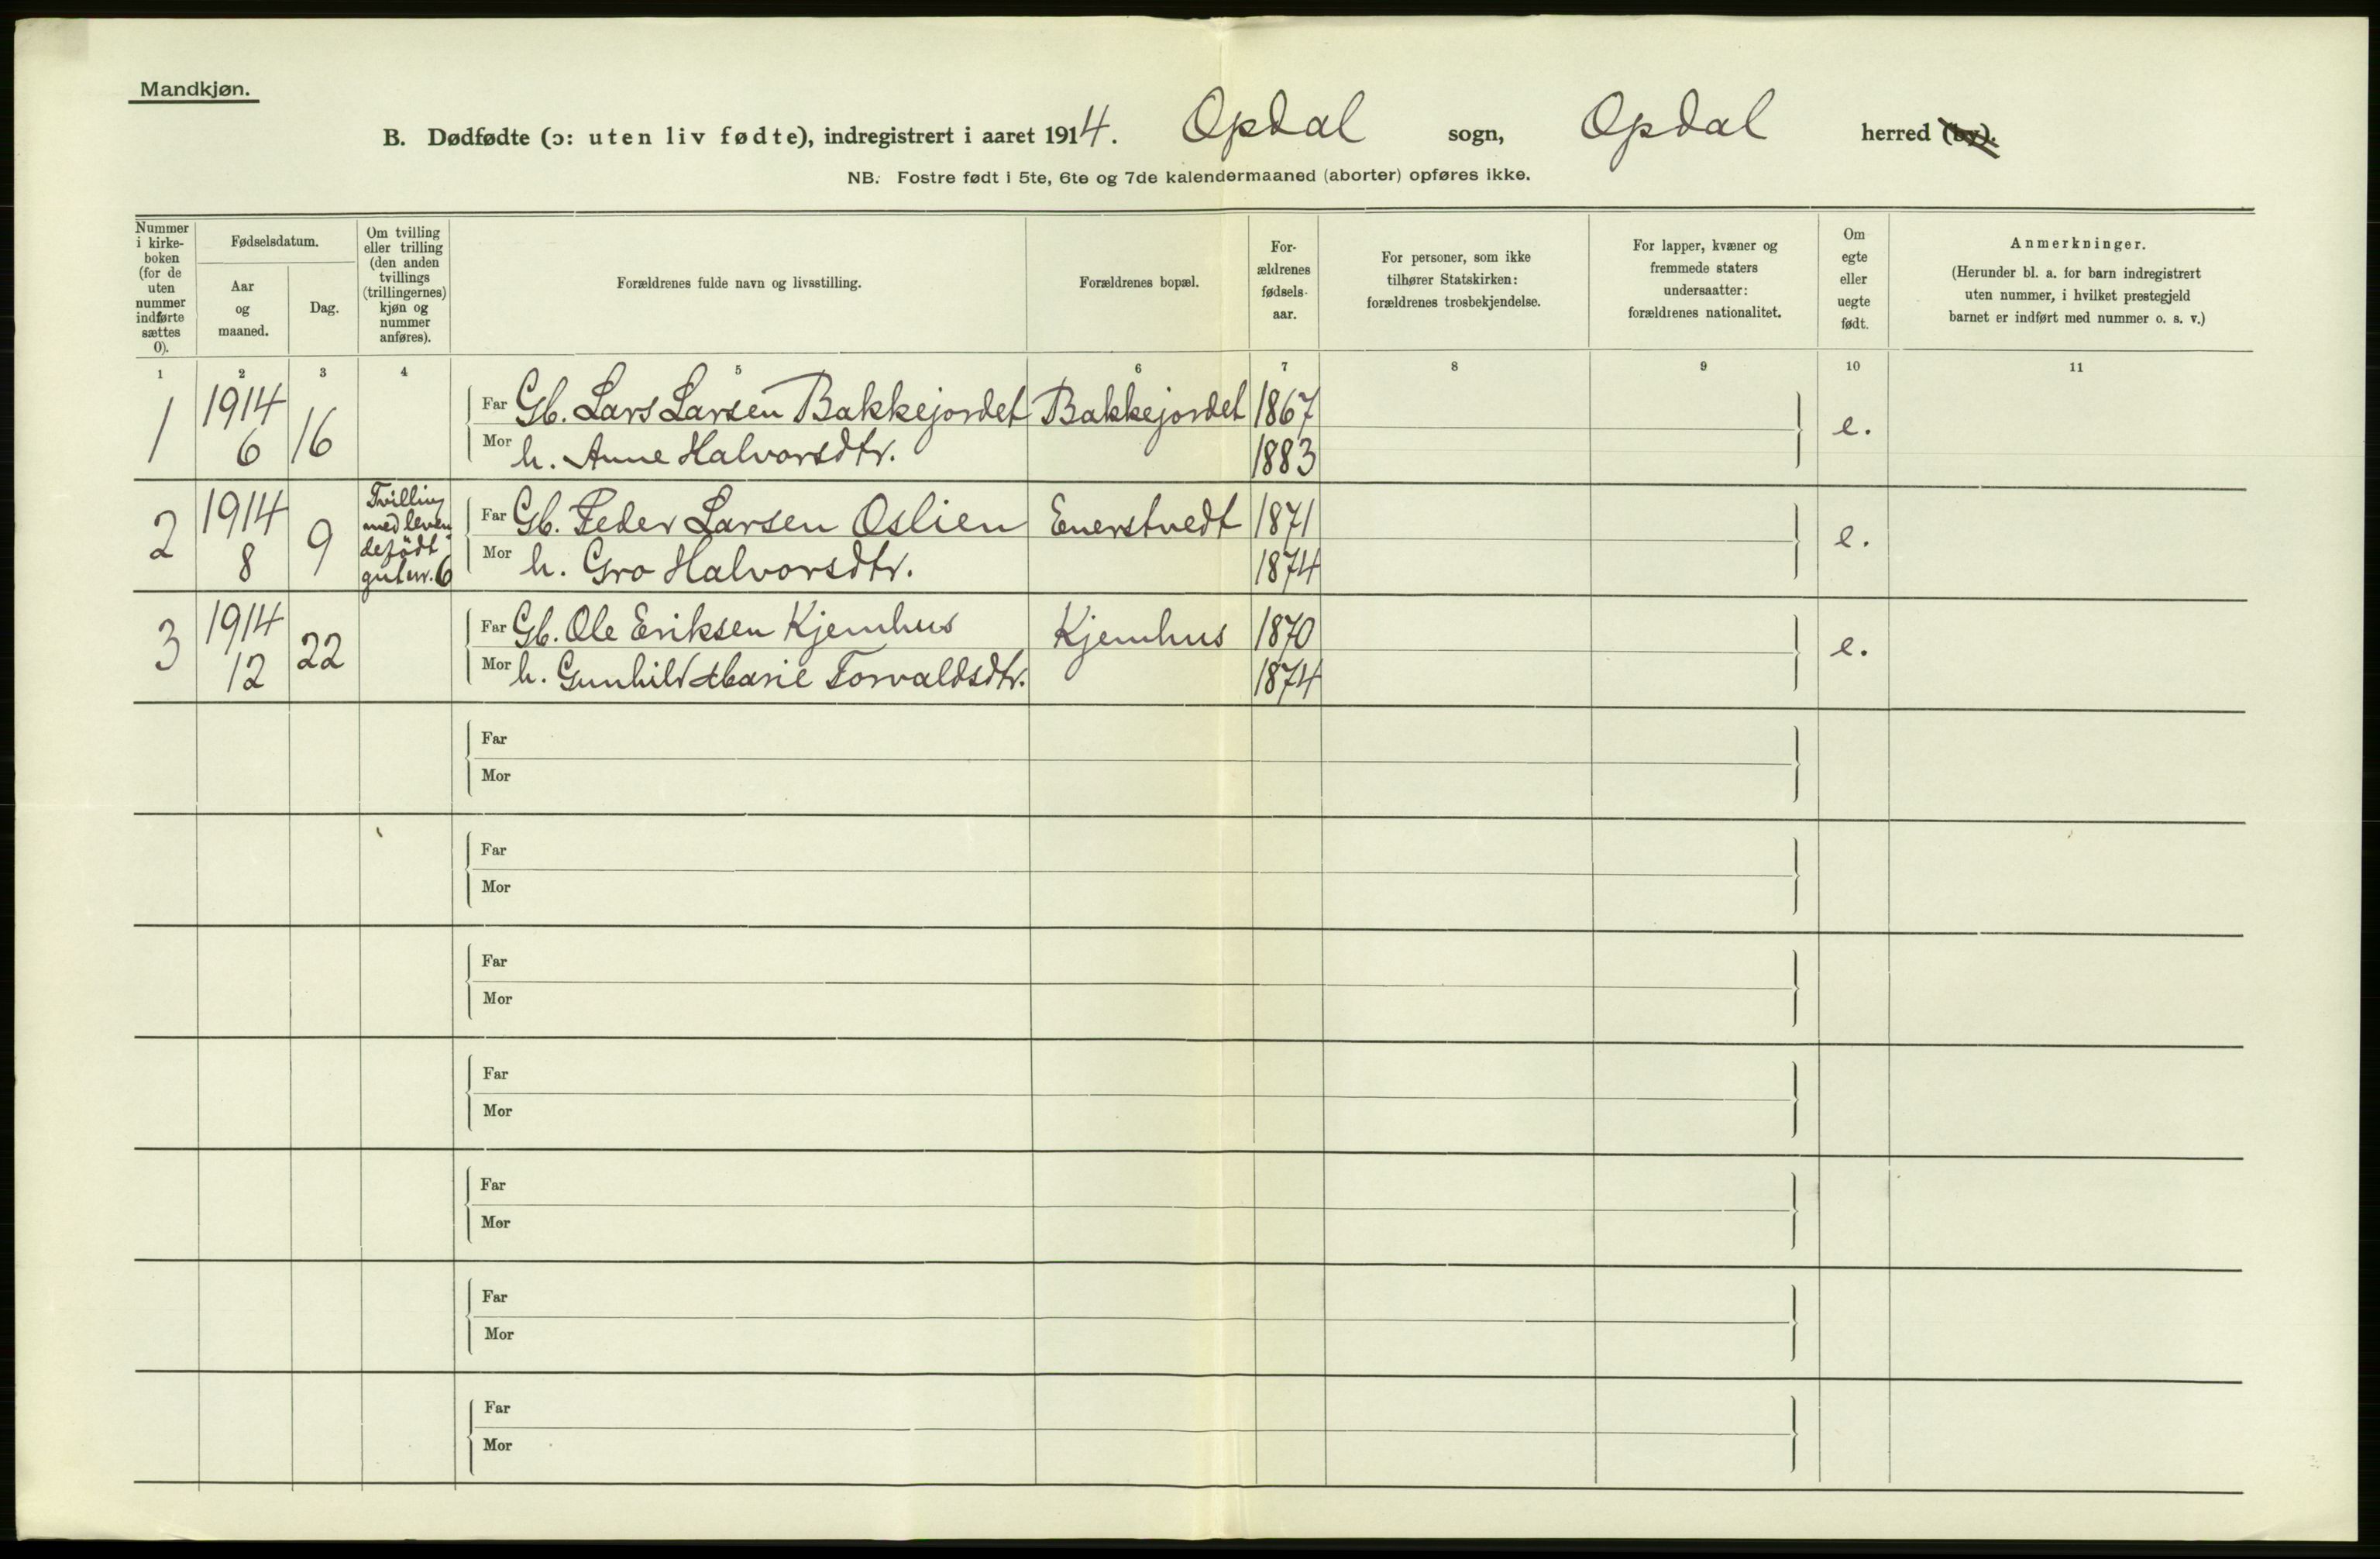 Mandkjøn.
B. Dødfødte (ɔ: uten liv fødte), indregistrert i aaret 1914. Opdal sogn, Opdal herred (by).
NB. Fostre født i 5te, 6te og 7de kalendermaaned (aborter) opføres ikke.
Nummer
i kirke-
boken
(for de
uten
nummer
indførte
sættes
0).
Fødselsdatum.
Aar
og
maaned.
Dag.
Om tvilling
eller trilling
(den anden
tvillings
(trillingernes)
kjøn og
nummer
anføres).
Forældrenes fulde navn og livsstilling.
Forældrenes bopæl.
For-
ældrenes
fødsels-
aar.
For personer, som ikke
tilhører Statskirken:
forældrenes trosbekjendelse.
For lapper, kvæner og
fremmede staters
undersaatter:
forældrenes nationalitet.
Om
egte
eller
uegte
født.
Anmerkninger.
(Herunder bl. a. for barn indregistrert
uten nummer, i hvilket prestegjeld
barnet er indført med nummer o. s. v.)
1 2 3 4 5 6 7 8 9 10 11
1 1914 6 16
Far Gb. Lars Larsen Bakkejordet Bakkejordet 1867 e.
Mor h. Anne Halvorsdtr. 1883
2 1914 8 9
Tvilling
med leven
defödt
gut nr. 6
Far Gb. Peder Larsen Oslien Enerstvedt 1871 e.
Mor h. Gro Halvorsdtr. 1874
3 1914 12 22
Far Gb. Ole Eriksen Kjemhus Kjemhus 1870 e.
Mor h. Gunhild Marie Torvaldsdtr. 1874
Far
Mor
Far
Mor
Far
Mor
Far
Mor
Far
Mor
Far
Mor
Far
Mor